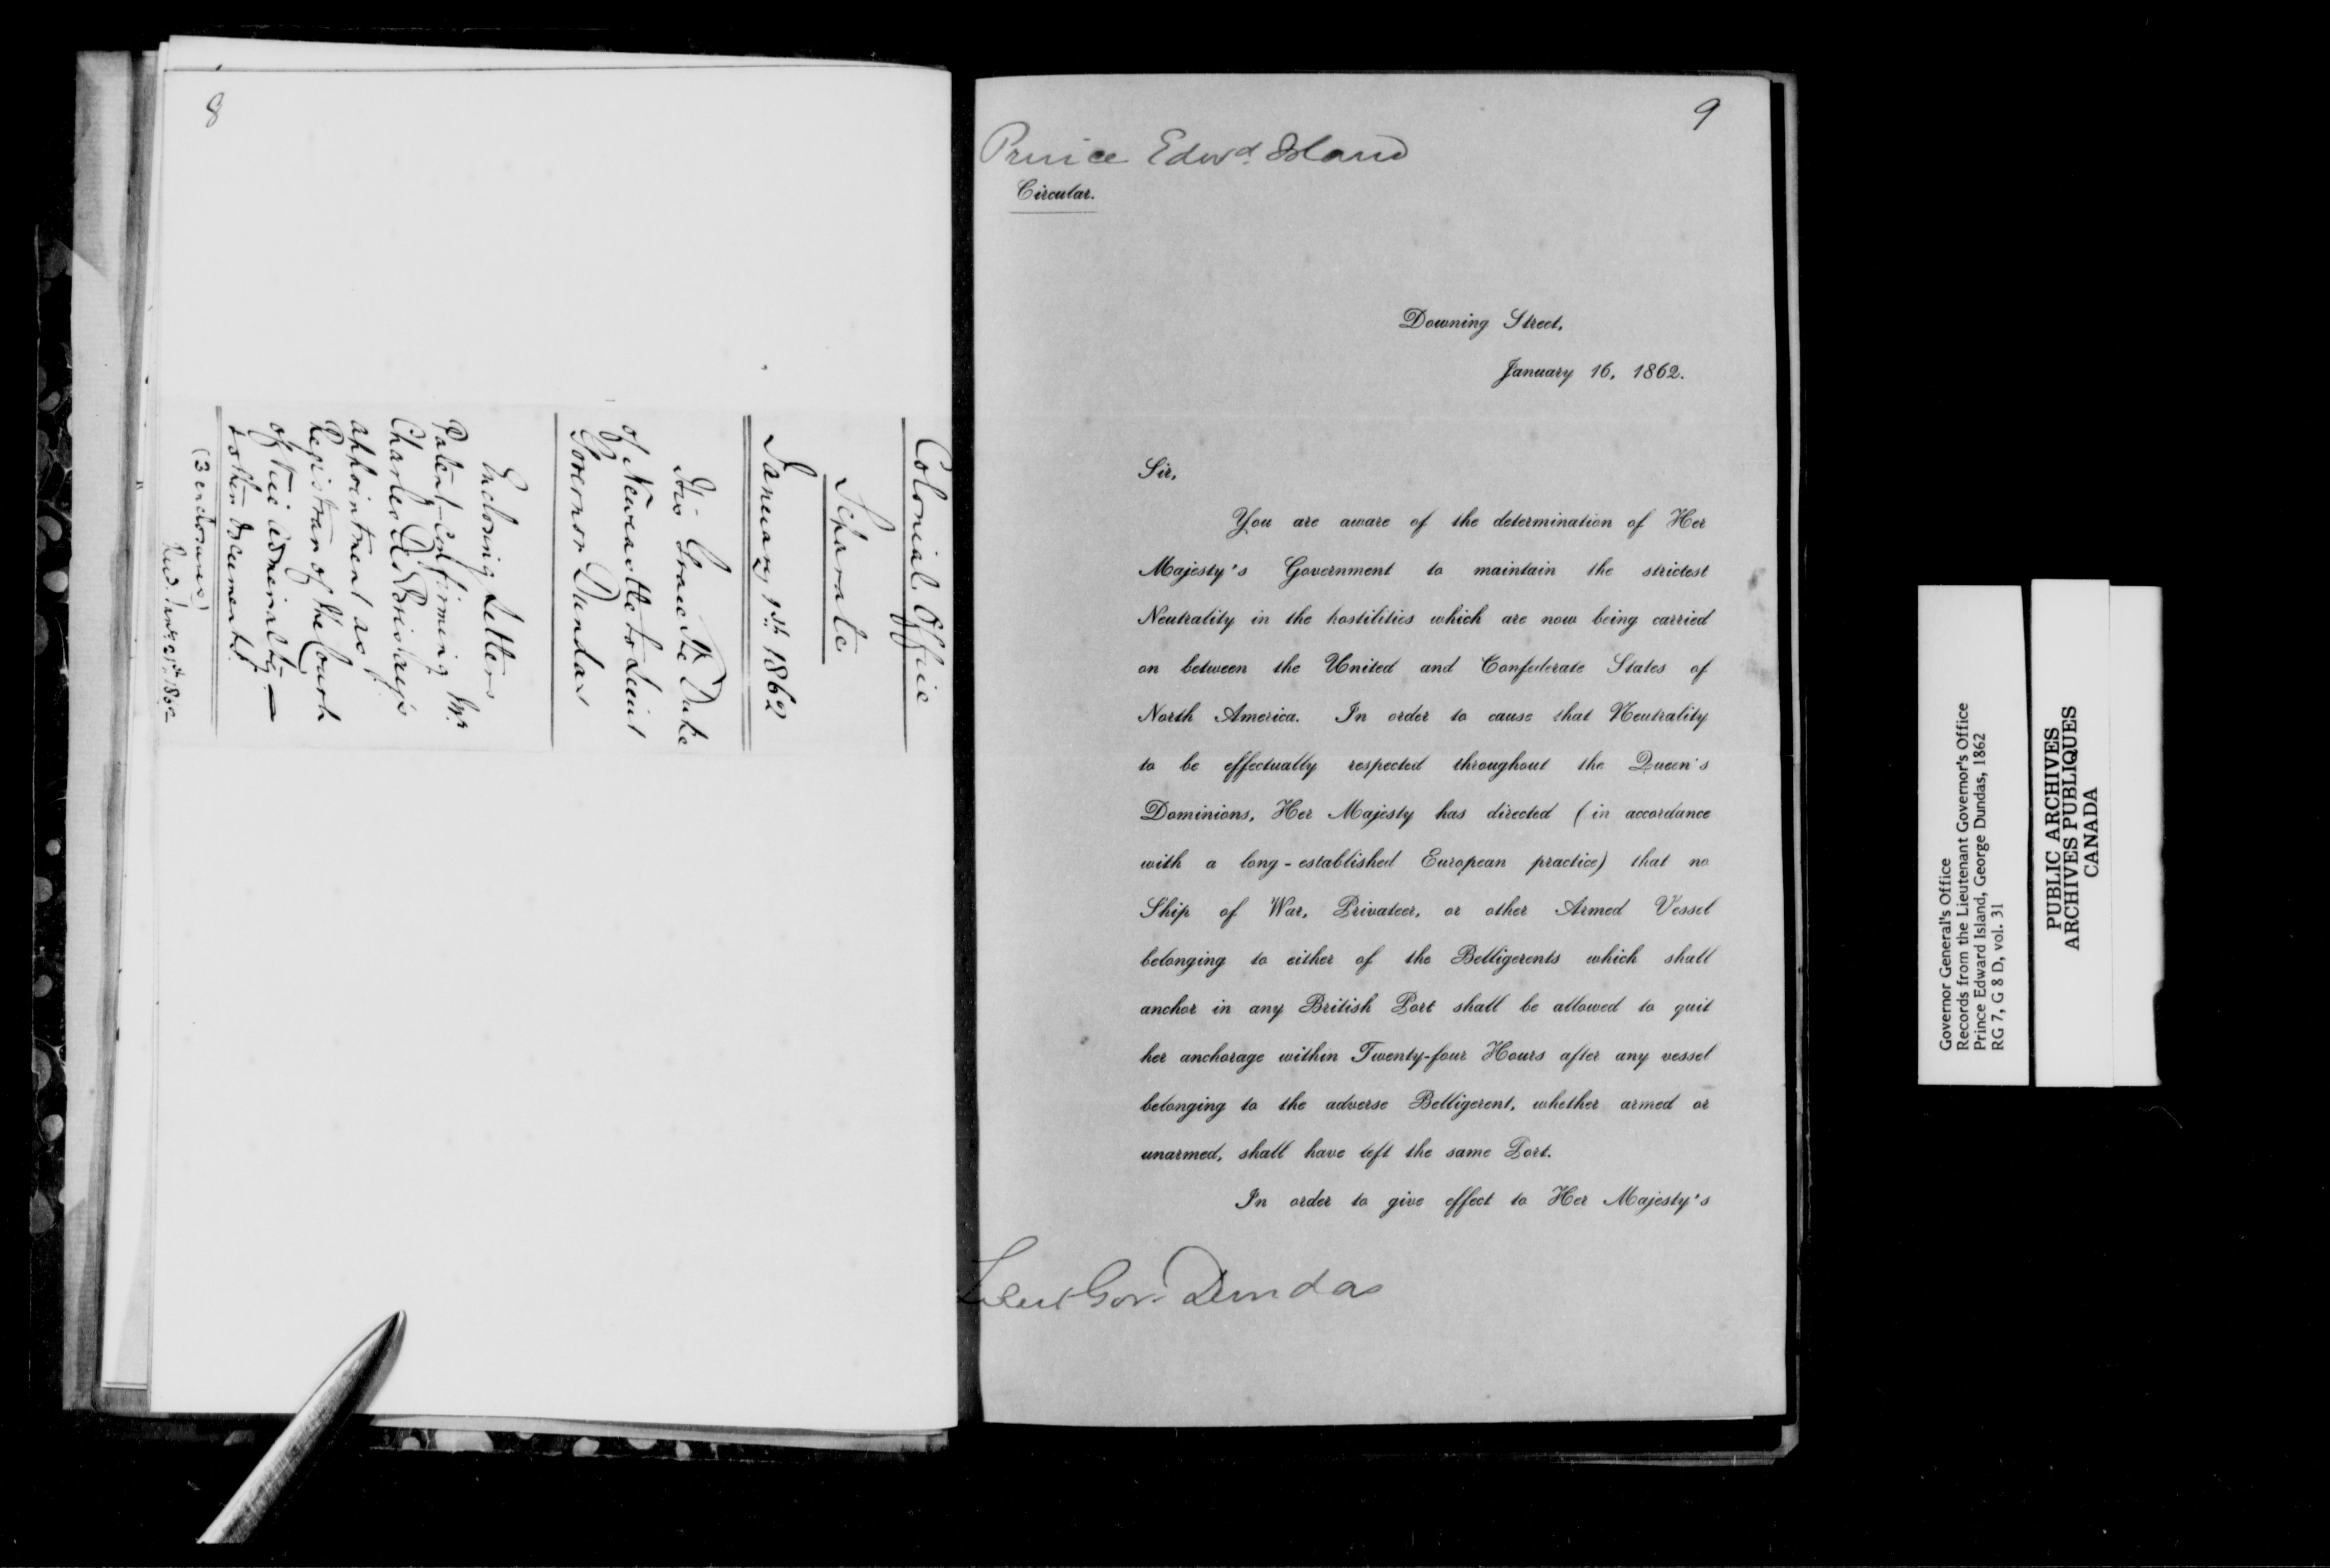 8
Colonial Office
Separate
January 1st 1862
His Grace the Duke
of Newcastle to Lieut
Governor Dundas
Enclosing Letters
Patent confirming Mr
Charles
appointment as
Registrar of the Court
of Vice Admiralty —
& other documents.
(3 enclosures)
1862
9
Prince Edwd. Island
Circular.
Downing Street,
January 16, 1862.
Sir,
You are aware of the determination of Her
Majesty's Government to maintain the strictest
Neutrality in the hostilities which are now being carried
on between the United and Confederate States of
North America. In order to cause that Neutrality
to be effectually respected throughout the Queen's
Dominions, Her Majesty has directed (in accordance
with a long-established European practice) that no
Ship of War, Privateer, or other Armed Vessel
belonging to either of the Belligerents which shall
anchor in any British Port shall be allowed to quit
her anchorage within Twenty-four Hours after any vessel
belonging to the adverse Belligerent, whether armed or
unarmed, shall have left the same Port.
In order to give effect to Her Majesty's
Lieut Gov. Dundas
Governor General's Office
Records from the Lieutenant Governor's Office
Prince Edward Island, George Dundas, 1862
RG 7, G 8 D, vol. 31
PUBLIC ARCHIVES
ARCHIVES PUBLIQUES
CANADA